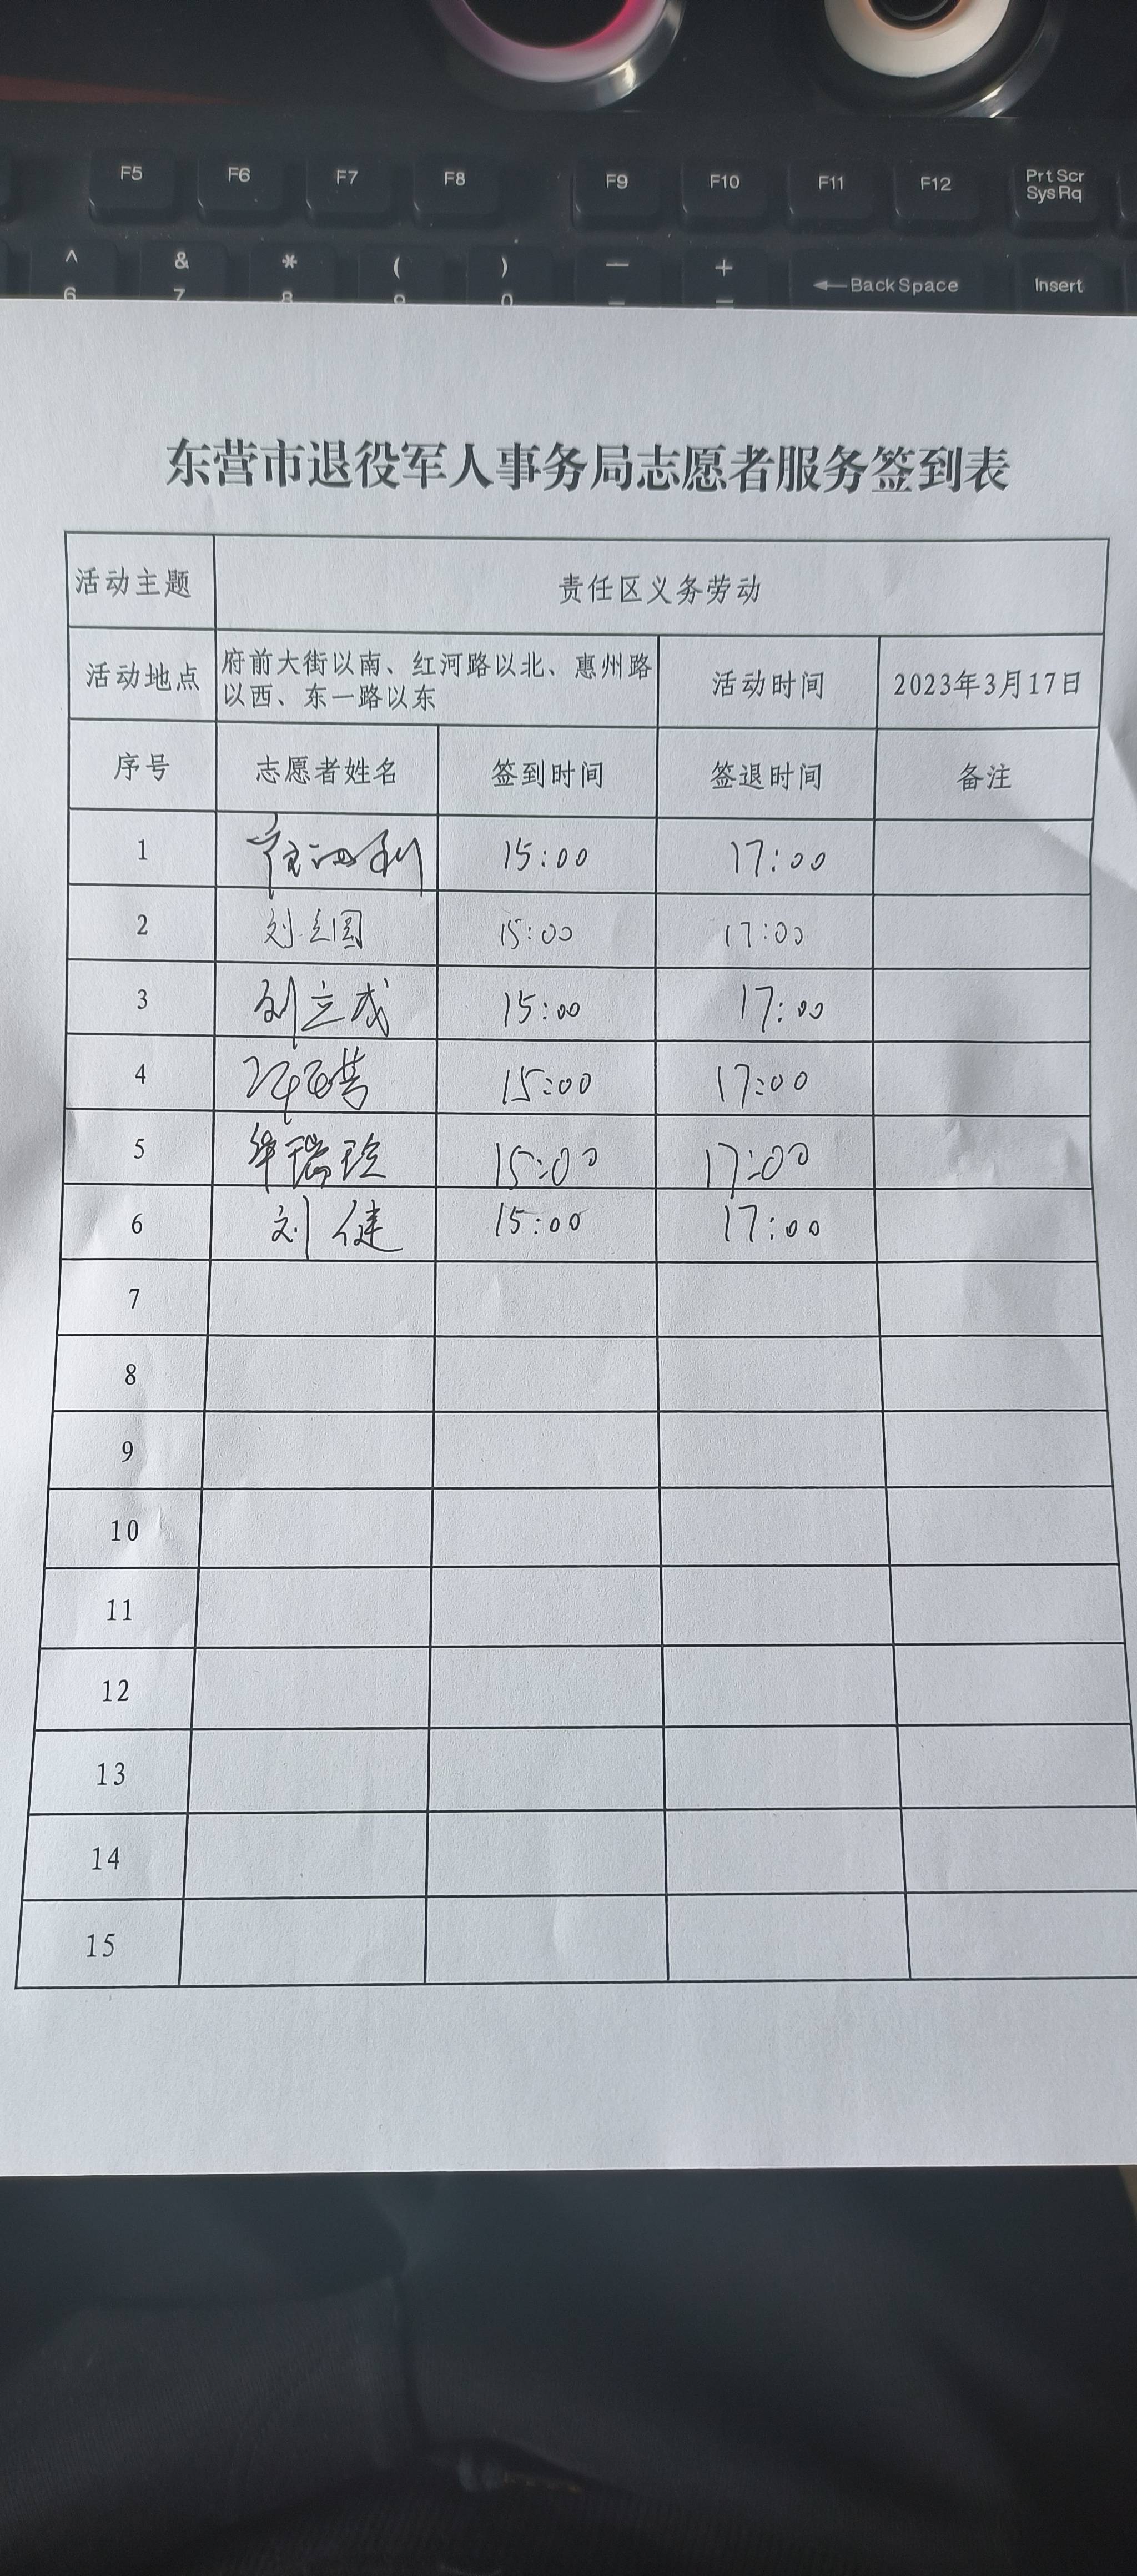 F5 F6 F7 F8 F9 F10 F11 F12 Prt Scr
Sys Rq
^ & * ( ) — +
6 7 8 9 0 – = ←Back Space Insert
东营市退役军人事务局志愿者服务签到表
活动主题 责任区义务劳动
活动地点 府前大街以南、红河路以北、惠州路
以西、东一路以东 活动时间 2023年3月17日
序号 志愿者姓名 签到时间 签退时间 备注
1 15:00 17:00
2 刘立国 15:00 17:00
3 刘立成 15:00 17:00
4 15:00 17:00
5 瑞玲 15:00 17:00
6 刘健 15:00 17:00
7
8
9
10
11
12
13
14
15